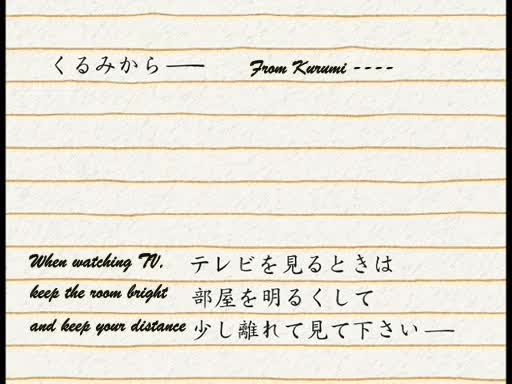 くるみから―― From Kurumi ----
When watching TV, テレビを見るときは
keep the room bright 部屋を明るくして
and keep your distance 少し離れて見て下さい――